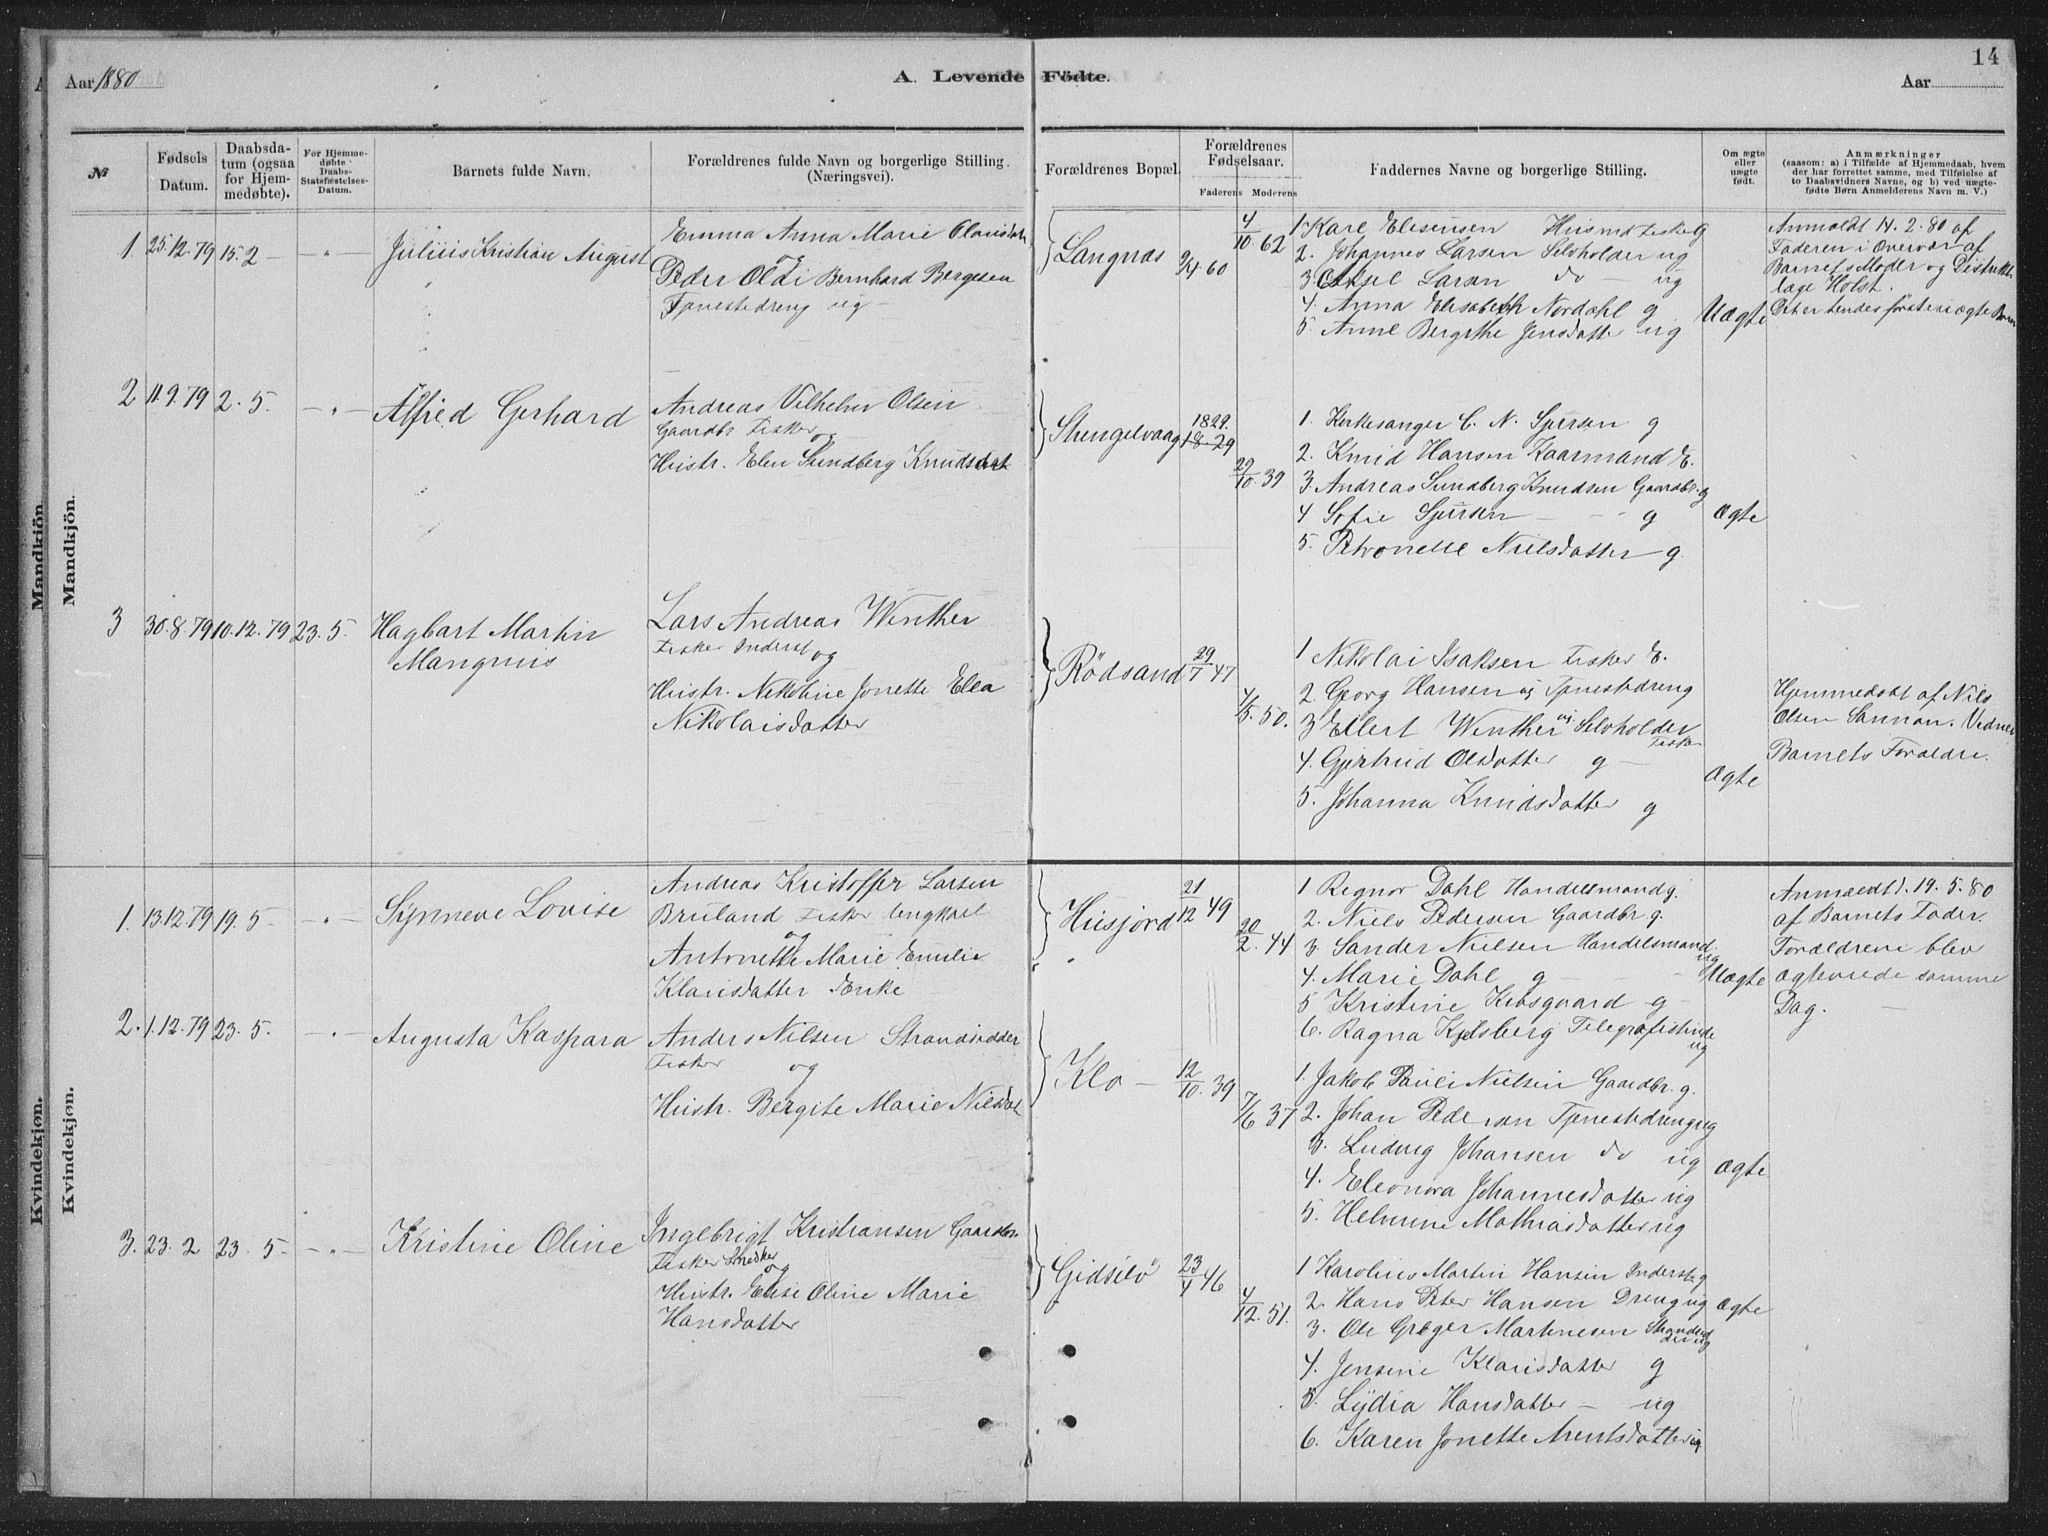 Aar 1880
A. Levende Födte.
14
Aar
№
Fødsels Datum.
Daabsdatum (ogsaa for Hjemmedøbte).
For Hjemmedøbte Daabs-Stadfæstelses-Datum.
Barnets fulde Navn.
Forældrenes fulde Navn og borgerlige Stilling. (Næringsvei).
Forældrenes Bopæl.
Forældrenes Fødselsaar.
Faderens Moderens
Faddernes Navne og borgerlige Stilling.
Om ægte eller uægte født.
Anmærkninger
(saasom: a) i Tilfælde af Hjemmedaab, hvem
der har forrettet samme, med Tilføielse af
to Daabsvidners Navne, og b) ved uægte-
fødte Børn Anmelderens Navn m. V.)
Mandkjön.
Mandkjön.
1 25.12.79 15.2 – – " – Julius Kristian August
Emma Anna Marie Olausdat
og
Peder Oldi Bernhard Bergesen
Tjenestedreng ug –
Langnæs 9/4 60 4/10 62
1 Karl Elesensen Husmd Fisker g
2. Johannes Larsen Selvholder ug
3 Aksel Larsen do – ug
4. Anna Elisabeth Nordahl g
5 Anne Bergithe Jensdatter ug
Uægte
Anmeldt 14.2.80 af
Faderen i Overvær af
Barnets Moder og Distrikts
læge Holst.
Det er hendes første uægte Barn
2 11.9.79 2.5. – " – Alfred Gerhard
Andreas Vilhelm Olsen
Gaardbr Fisker og
Hustr. Elen Sundberg Knudsdat
Skengelvaag 1829. 18-29 29/10.39
1. Kirkesanger C. N. Sjursen g
2. Knud Hansen Kaarmand E.
3. Andreas Sundberg Knudsen Gaardbr. g
4 Sofie Sjursen – – g
5. Petronelle Nielsdatter g.
Ægte
3 30.8.79 10.12.79 23.5. Hagbart Martin
Mangnus
Lars Andreas Winther
Fisker Inderst og
Hustr. Nikoline Jonette Elea
Nikolaisdatter
Rödsand 29/7 47 4/5.50.
1 Nikolai Isaksen Fisker E.
2. Georg Hansen ug Tjenestedreng
3 Ellert Winther ug. Selvholder
Fisker
4. Gjertrud Olsdatter g –
5. Johanna Knudsdatter g
Ægte
Hjemmedøbt af Nils
Olsen Sannan. Vidner
Barnets Forældre.
Kvindekjøn.
Kvindekjøn.
1. 13.12.79 19.5 – – " – Synneve Lovise
Andreas Kristoffer Larsen
Bruland Fisker Ungkarl
og
Antonette Marie Emilie
Klausdatter Enke
Husjord 21/12 49 20/2.44
1 Regnor Dahl Handelsmand g.
2. Niels Pedersen Gaardbr g.
3 Sander Nielsen Handelsmand
ug
4. Marie Dahl g –
5 Kristine Kebsgaard g –
6. Ragna Kjelsberg Telegrafistinde
ug
Uægte
Anmeldt d. 19.5.80
af Barnets Fader.
Forældrene blev
ægteviede samme
Dag. –
2. 1.12.79 23.5. – " – Augusta Kaspara
Anders Nilsen Strandsidder
Fisker og
Hustr. Bergite Marie Nilsdat
Klo – 12/10.39 7/6 37
1. Jakob Pauli Nielsen Gaardbr. g.
2. Johan Pedersen Tjenestedreng ug
3. Ludvig Johansen do ug
4. Eleonora Johannesdatter ug
5. Helmine Mathiasdatter ug
Ægte
3. 23.2 23.5 – – " – Kristine Oline
Ingebrigt Kristiansen Gaardbr.
Fisker Snedker
og
Hustr. Elise Oline Marie
Hansdatter
Gidsilö 23/4 46 4/12.51.
1 Karolius Martin Hansen Inderst g
2. Hans Peter Hansen Dreng ug
3. Ole Greger Martinesen Strandsid
der ug
4. Jensine Klausdatter g
5. Lydia Hansdatter – ug
6. Karen Jonette Arentsdatter ug
Ægte